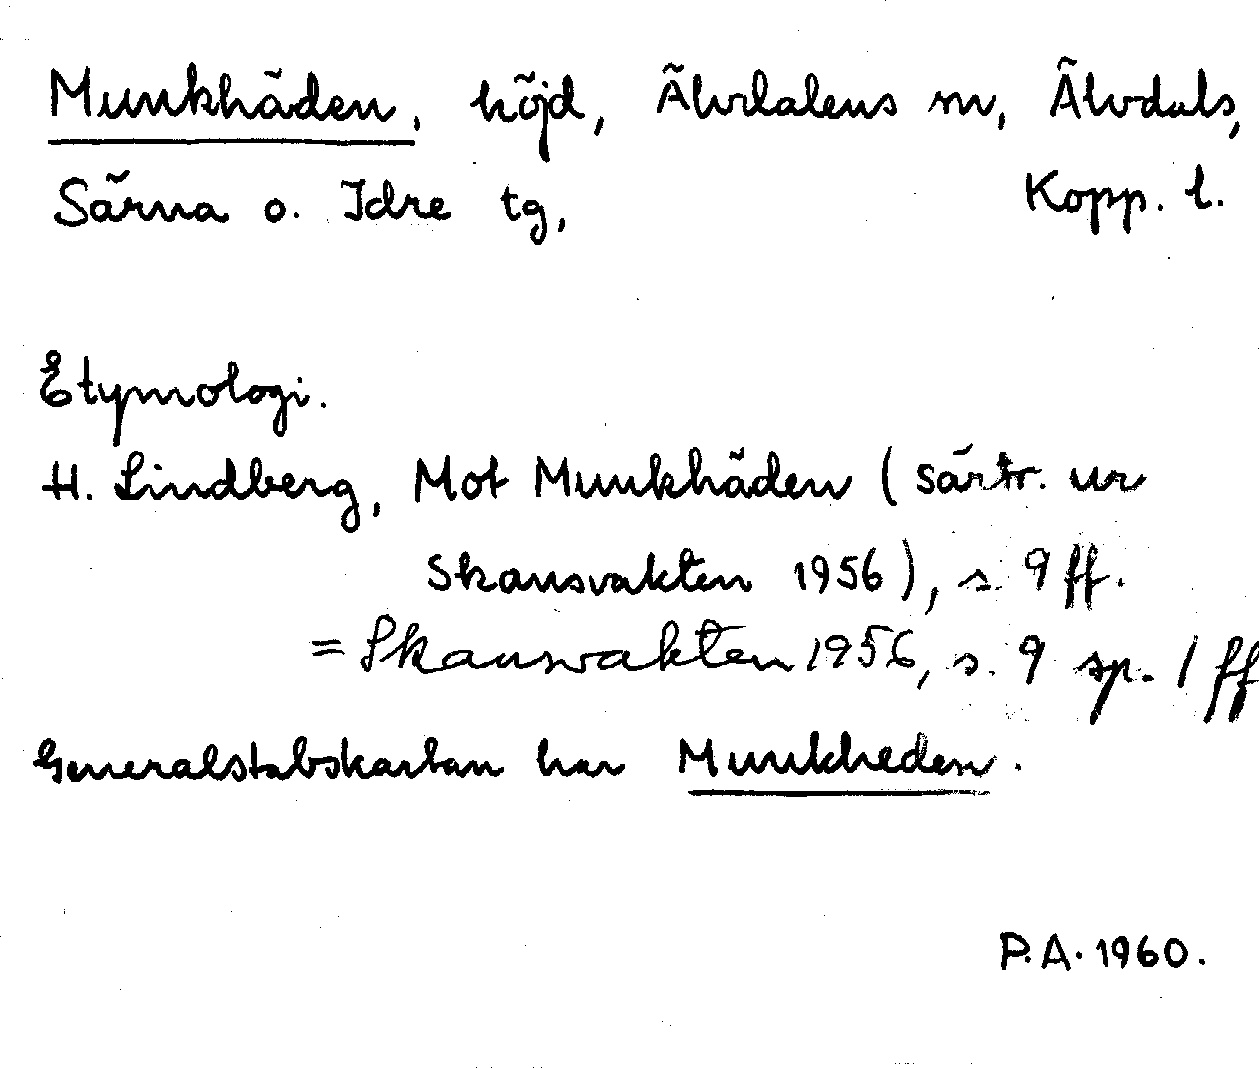 Munkhäden, höjd, Älvdalens sn, Älvdals,
Särna o. Idre tg, Kopp. l.
Etymologi.
H. Lindberg, Mot Munkhäden (särtr. ur
Skansvakten 1956), s. 9 ff.
= Skansvakten 1956, s. 9 sp. 1 ff
Generalstabskartan har Munkheden.
P.A. 1960.